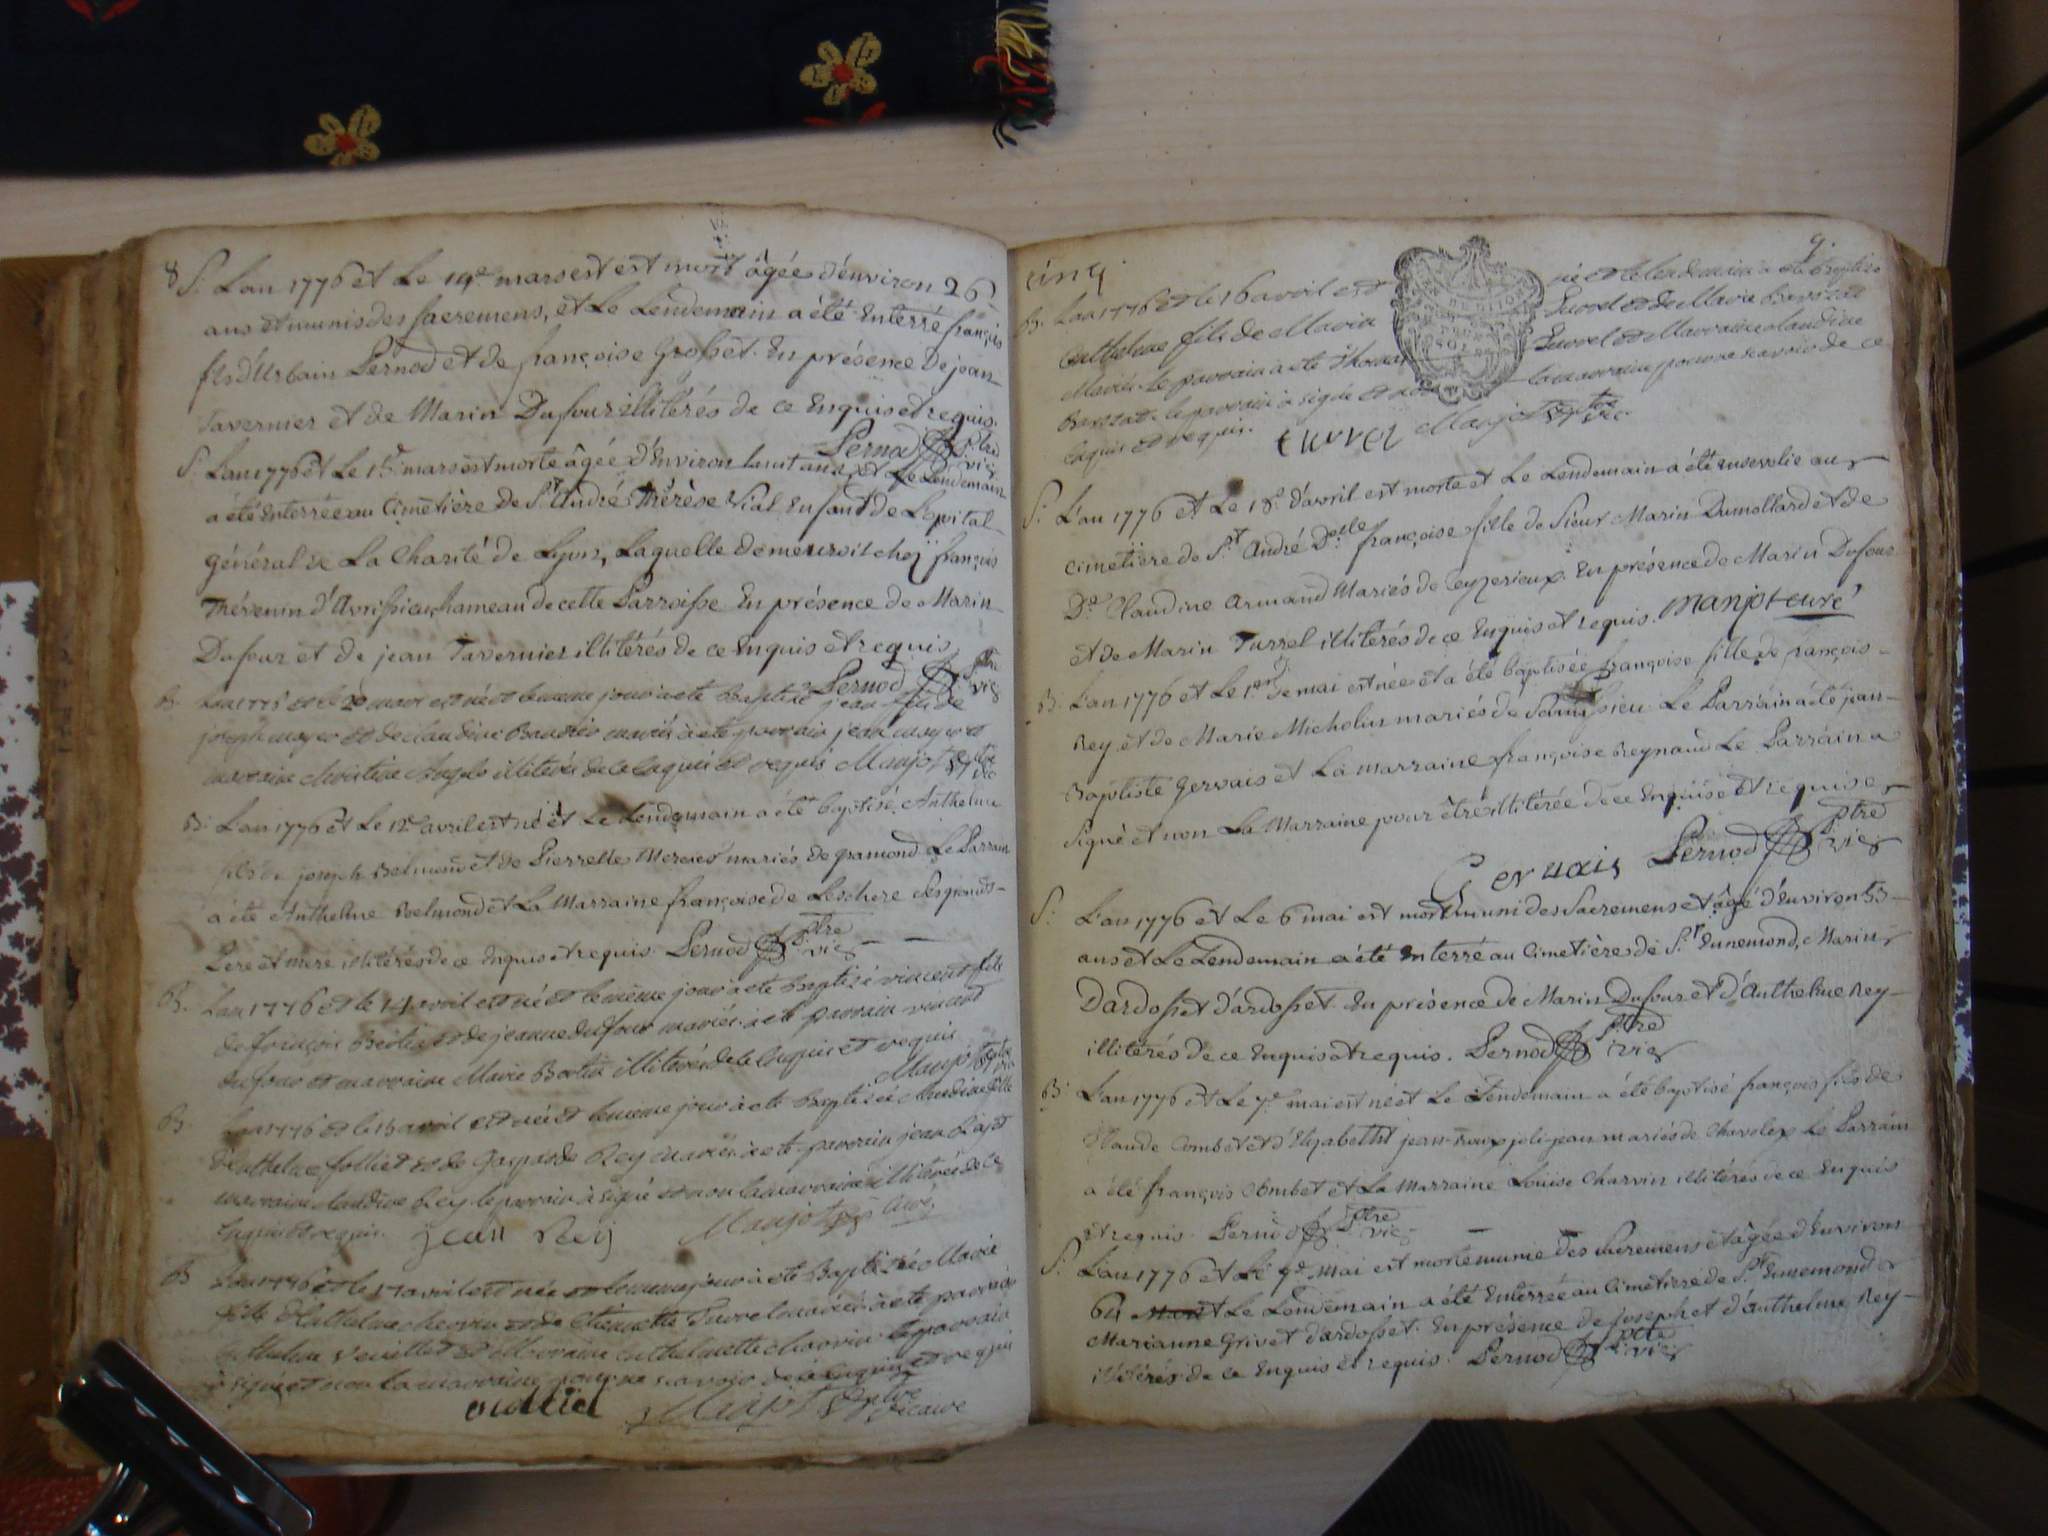 8
S. L'an 1776 et Le 14e mars est mort âgée d'environ 26
ans et munis des sacremens, et Le Lendemain a été Enterré françois
fils d'Urbain Pernod et de françoise Grosset. En présence de jean
Tavernier et de Marin Dufour illitérés de ce Enquis et requis.
Pernod ptre vic
S. L'an 1776 et Le mars est morte âgée d'Environ huit ans et Le Lendemain
a été Enterrée au Cimetière De St André Thérèse Vial Enfant de L'opital
général de La Charité de Lyon, Laquelle demeuroit chez françois
Thévenin d'Avrissieu, hameau de cette Parroisse En présence de Marin
Dufour et de jean Tavernier illitérés de ce Enquis et requis
Pernod ptre vic
B. L'an 1776 et le 20 mars est né et le meme jour a eté Baptisé jean fils de
joseph et de claudine mariés a eté parrain jean et
marraine Christine illiterés de ce enquis et requis Manjot ptre vic
B. L'an 1776 et Le 12e avril est né et Le Lendemain a été baptisé Anthelme
fils de joseph Belmond et de Pierrette Mercier mariés de gramond Le Parrain
a été Anthelme Belmond et La Marraine françoise de Leschere ses grands
Pere et mere illitérés de ce Enquis et requis. Pernod ptre vic
B. L'an 1776 et le 14 avril est né et le même jour a eté baptisé vincent fils
de françois et de jeanne dufour mariés a eté parrain vincent
dufour et marraine Marie illiterés de ce Enquis et requis
Manjot ptre vic
B. L'an 1776 et le 15 avril est née et le meme jour a eté Baptisée Claudine fille
d'Anthelme folliet et de Gasparde Rey mariés a eté parrain jean Rey et
marraine Claudine Rey le parrain a signé et non la marraine illiterée de ce
Enquise et requise. jean Rey Manjot curé
B L'an 1776 et le 17 avril est née et le meme jour a eté Baptisée Marie
fille d'Anthelme et de Etiennette Turrel mariés a eté parrain
Anthelme et Marraine Anthelmette le parrain
a signé et non la marraine pour ne savoir de ce enquise et requise
Manjot ptre vicaire
9.
cinq
B. L'an 1776 et le 16 avril est né et le lendemain a eté baptisé
Anthelme fils de Marin Turrel et de Marie
Mariés. le parrain a eté Thomas Turrel et Marraine claudine
le parrain a signé et non la marraine pour ne savoir de ce
enquis et requis. turrel Manjot ptre vic.
S. L'an 1776 et Le 18e d'avril est morte et Le Lendemain a été ensevelie au
cimetière de St André Delle françoise fille de Sieur Marin Dumollard et de
De Claudine Armand Mariés de Ceyzerieux. En présence de Marin Dufour
et de Marin Turrel illitérés de ce Enquis et requis. Manjot curé
B. L'an 1776 et Le 1er de mai est née et a été baptisée françoise fille de françois
Rey et de Marie Michelin mariés de Le Parrain a été jean
Baptiste Gervais et La marraine françoise Reynaud Le Parrain a
signé et non La Marraine pour être illitérée de ce Enquise et requise
Gervais Pernod ptre vic
S. L'an 1776 et Le 6 mai est mort muni des Sacremens et âgé d'Environ 53
ans et Le Lendemain a été Enterré au Cimetière de St Ennemond, Marin
Dardosset d'ardosset. En présence de Marin Dufour et d'Anthelme Rey
illitérés de ce Enquis et requis. Pernod ptre vic
B. L'an 1776 et Le 7e mai est né et Le Lendemain a été baptisé françois fils de
Claude Combet et d'Elizabeth jean-roux joli-jean mariés de Chavolex Le Parrain
a été françois Combet et La Marraine Louise Charvin illitérés de ce Enquis
et requis. Pernod ptre vic
S. L'an 1776 et Le 9e Mai est morte munie des Sacremens et âgée d'Environ
64 et Le Lendemain a été Enterrée au Cimetière de St Ennemond
Marianne Grivet d'ardosset. En présence de joseph et d'Anthelme Rey
illitérés de ce Enquis et requis. Pernod ptre vic